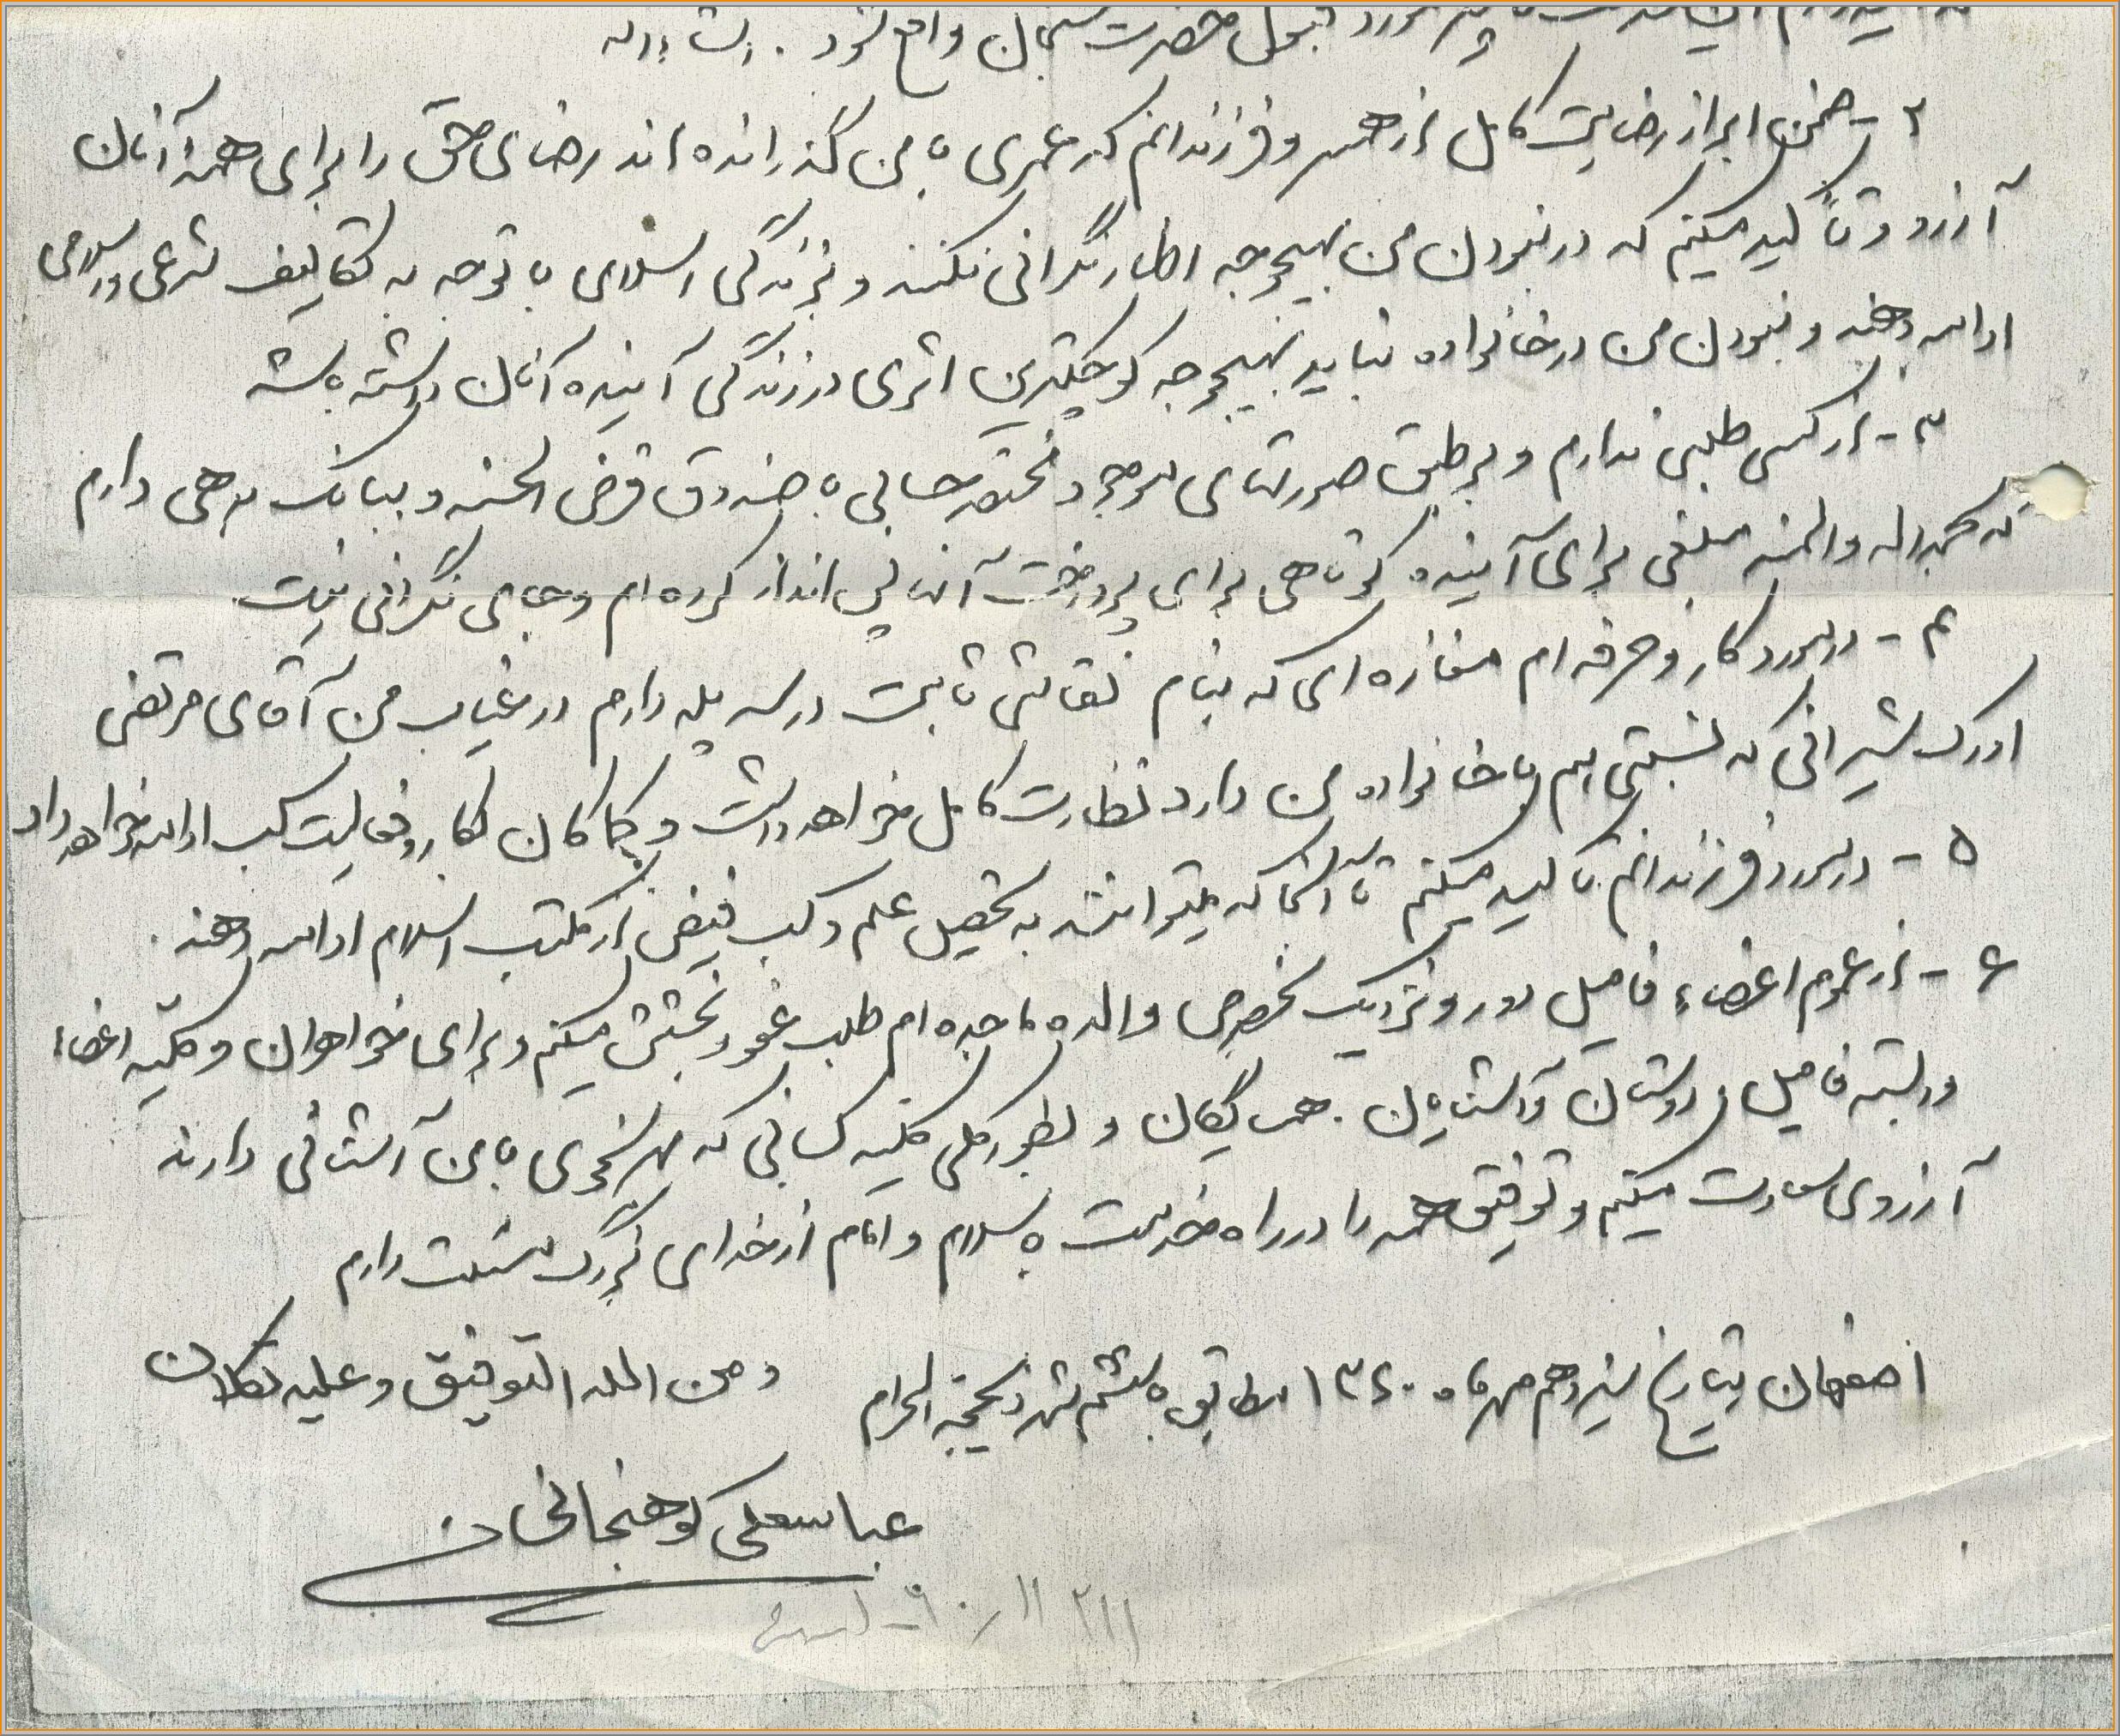 مورد قبول حضرت سبحان واقع شود . انشاءاله
۲ - ضمن ابراز رضایت کامل از همسر و فرزندانم که عمری با من گذرانده اند رضای حق را برای همه آنان
آرزو و تأکید میکنم که در نبودن من بهیچوجه اظهار نگرانی نکنند و بزندگی اسلامی با توجه به تکالیف شرعی و اسلامی
ادامه دهند و نبودن من در خانواده نباید بهیچوجه کوچکترین اثری در زندگی آینده آنان داشته باشد
۳ - از کسی طلبی ندارم و بر طبق صورتهای موجود مختصر حسابی با صندوق قرض الحسنه و ببانک بدهی دارم
که بحمداله والمنه مبلغی برای آینده کوتاهی برای پرداخت آنها پس انداز کرده ام و جای نگرانی نیست
۴ - در مورد کار و حرفه ام مغازه ای که بنام نقاشی ثابت در سه پله دارم در غیاب من آقای مرتضی
اورک شیرانی که نسبتی هم با خانواده من دارد نظارت کامل خواهد داشت و کماکان بکار و فعالیت کسب ادامه خواهد داد
۵ - در مورد فرزندانم تاکید میکنم تا آنجا که میتوانند به تحصیل علم و کسب فیض از مکتب اسلام ادامه دهند .
۶ - از عموم اعضاء فامیل دور و نزدیک بخصوص والده ماجده ام طلب عفو و بخشش میکنم و برای خواهران و کلیه اعضاء
وابسته فامیل و دوستان و آشنایان . همسایگان و بطور کلی کلیه کسانی که بهر نحوی با من آشنائی دارند
آرزوی سعادت میکنم و توفیق همه را در راه خدمت باسلام و امام از خدای بزرگ مسئلت دارم
اصفهان بتاریخ سیزدهم مهرماه ۱۳۶۰ مطابق با ششم شهر ذیحجة الحرام و من الله التوفیق و علیه تکلان
عباسعلی کوهنجانی